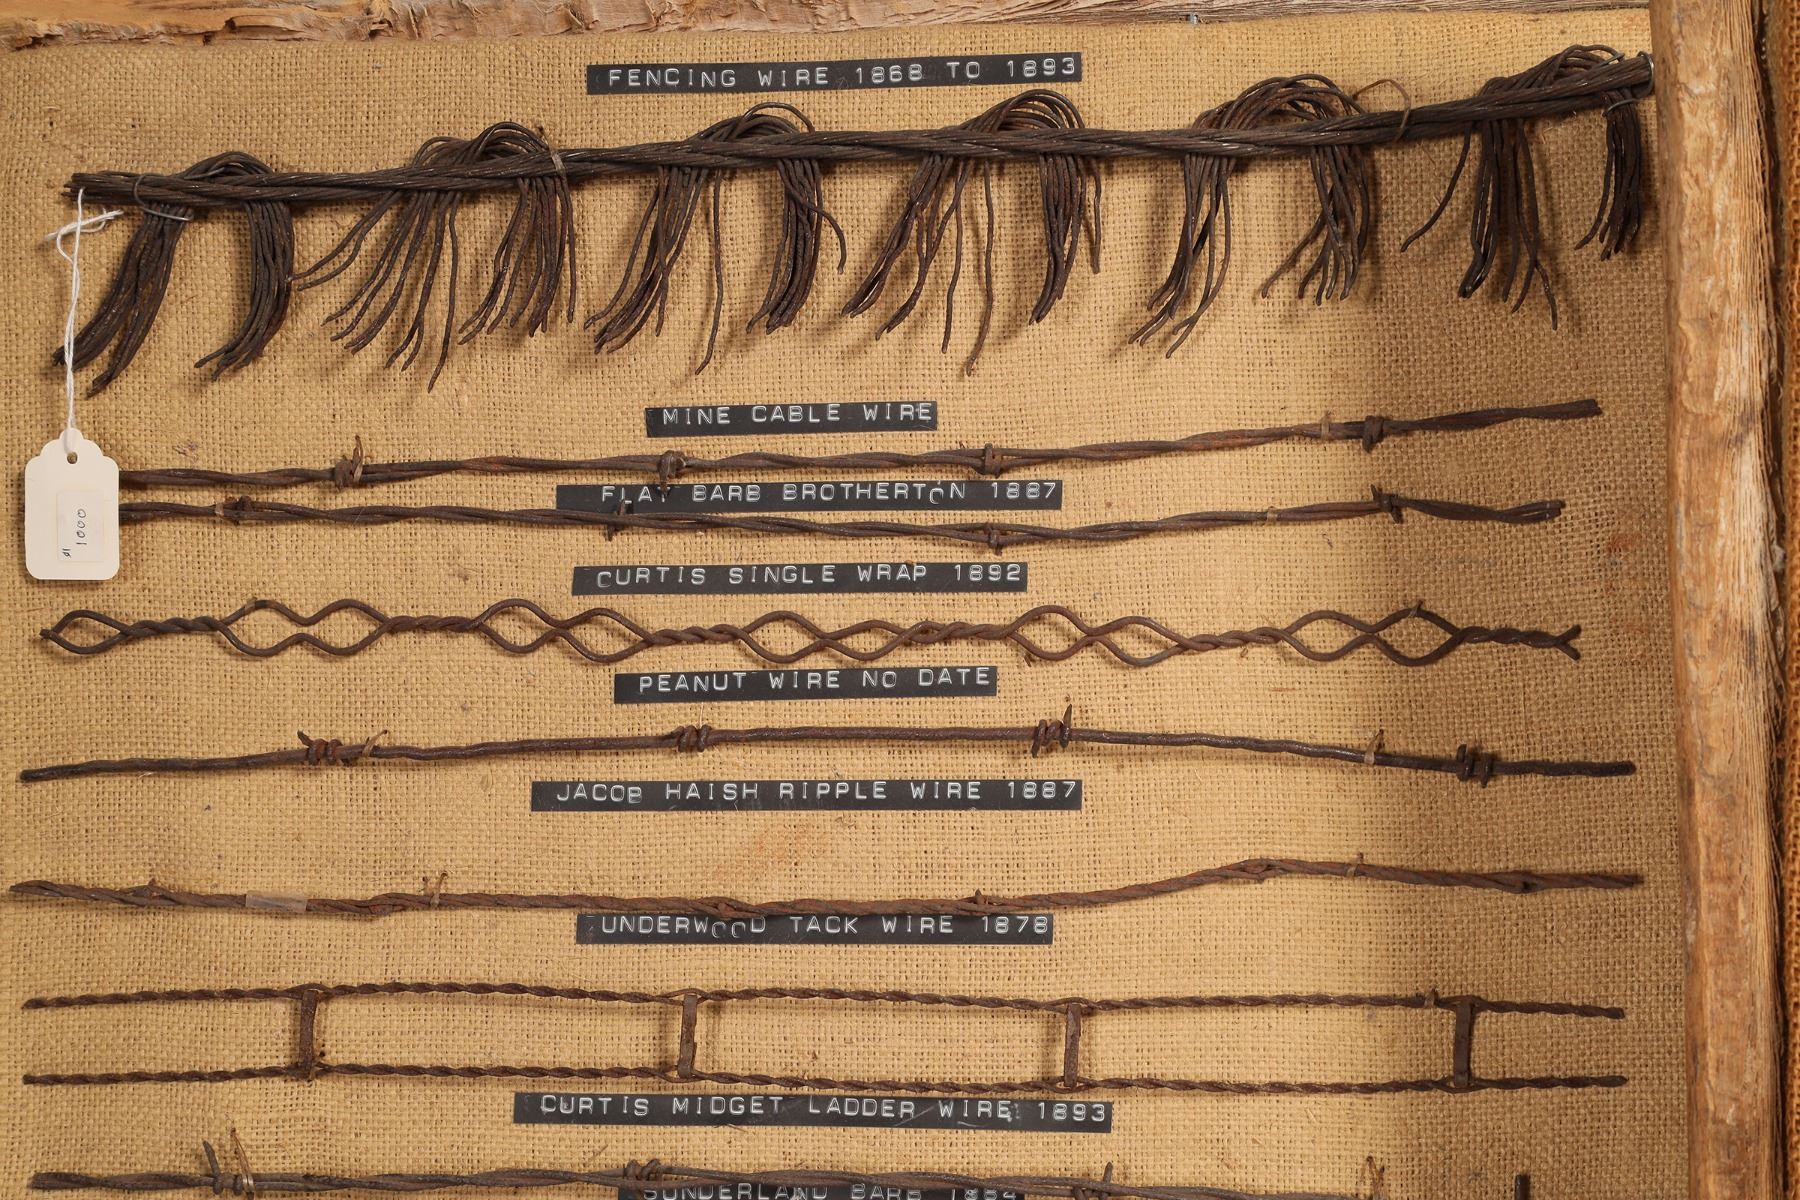 FENCING WIRE 1868 TO 1893
MINE CABLE WIRE
FLAT BARB BROTHERTON 1887
$1000
CURTIS SINGLE WRAP 1892
PEANUT WIRE NO DATE
JACOB HAISH RIPPLE WIRE 1887
UNDERWOOD TACK WIRE 1878
CURTIS MIDGET LADDER WIRE 1893
SUNDERLAND BARB 1884